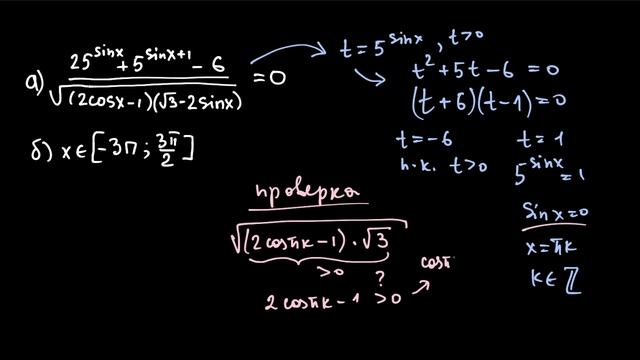 а) (25^sinx + 5^sinx+1 − 6) / √((2cosx−1)(√3−2sinx)) = 0
б) x∈[−3π; 3π/2]
t = 5^sinx, t>0
t² + 5t − 6 = 0
(t+6)(t−1) = 0
t = −6 t = 1
н.к. t>0 5^sinx = 1
sinx = 0
x = πk
k∈ℤ
проверка
√((2cosπk−1)·√3
>0
?
2cosπk−1 >0
cosπ